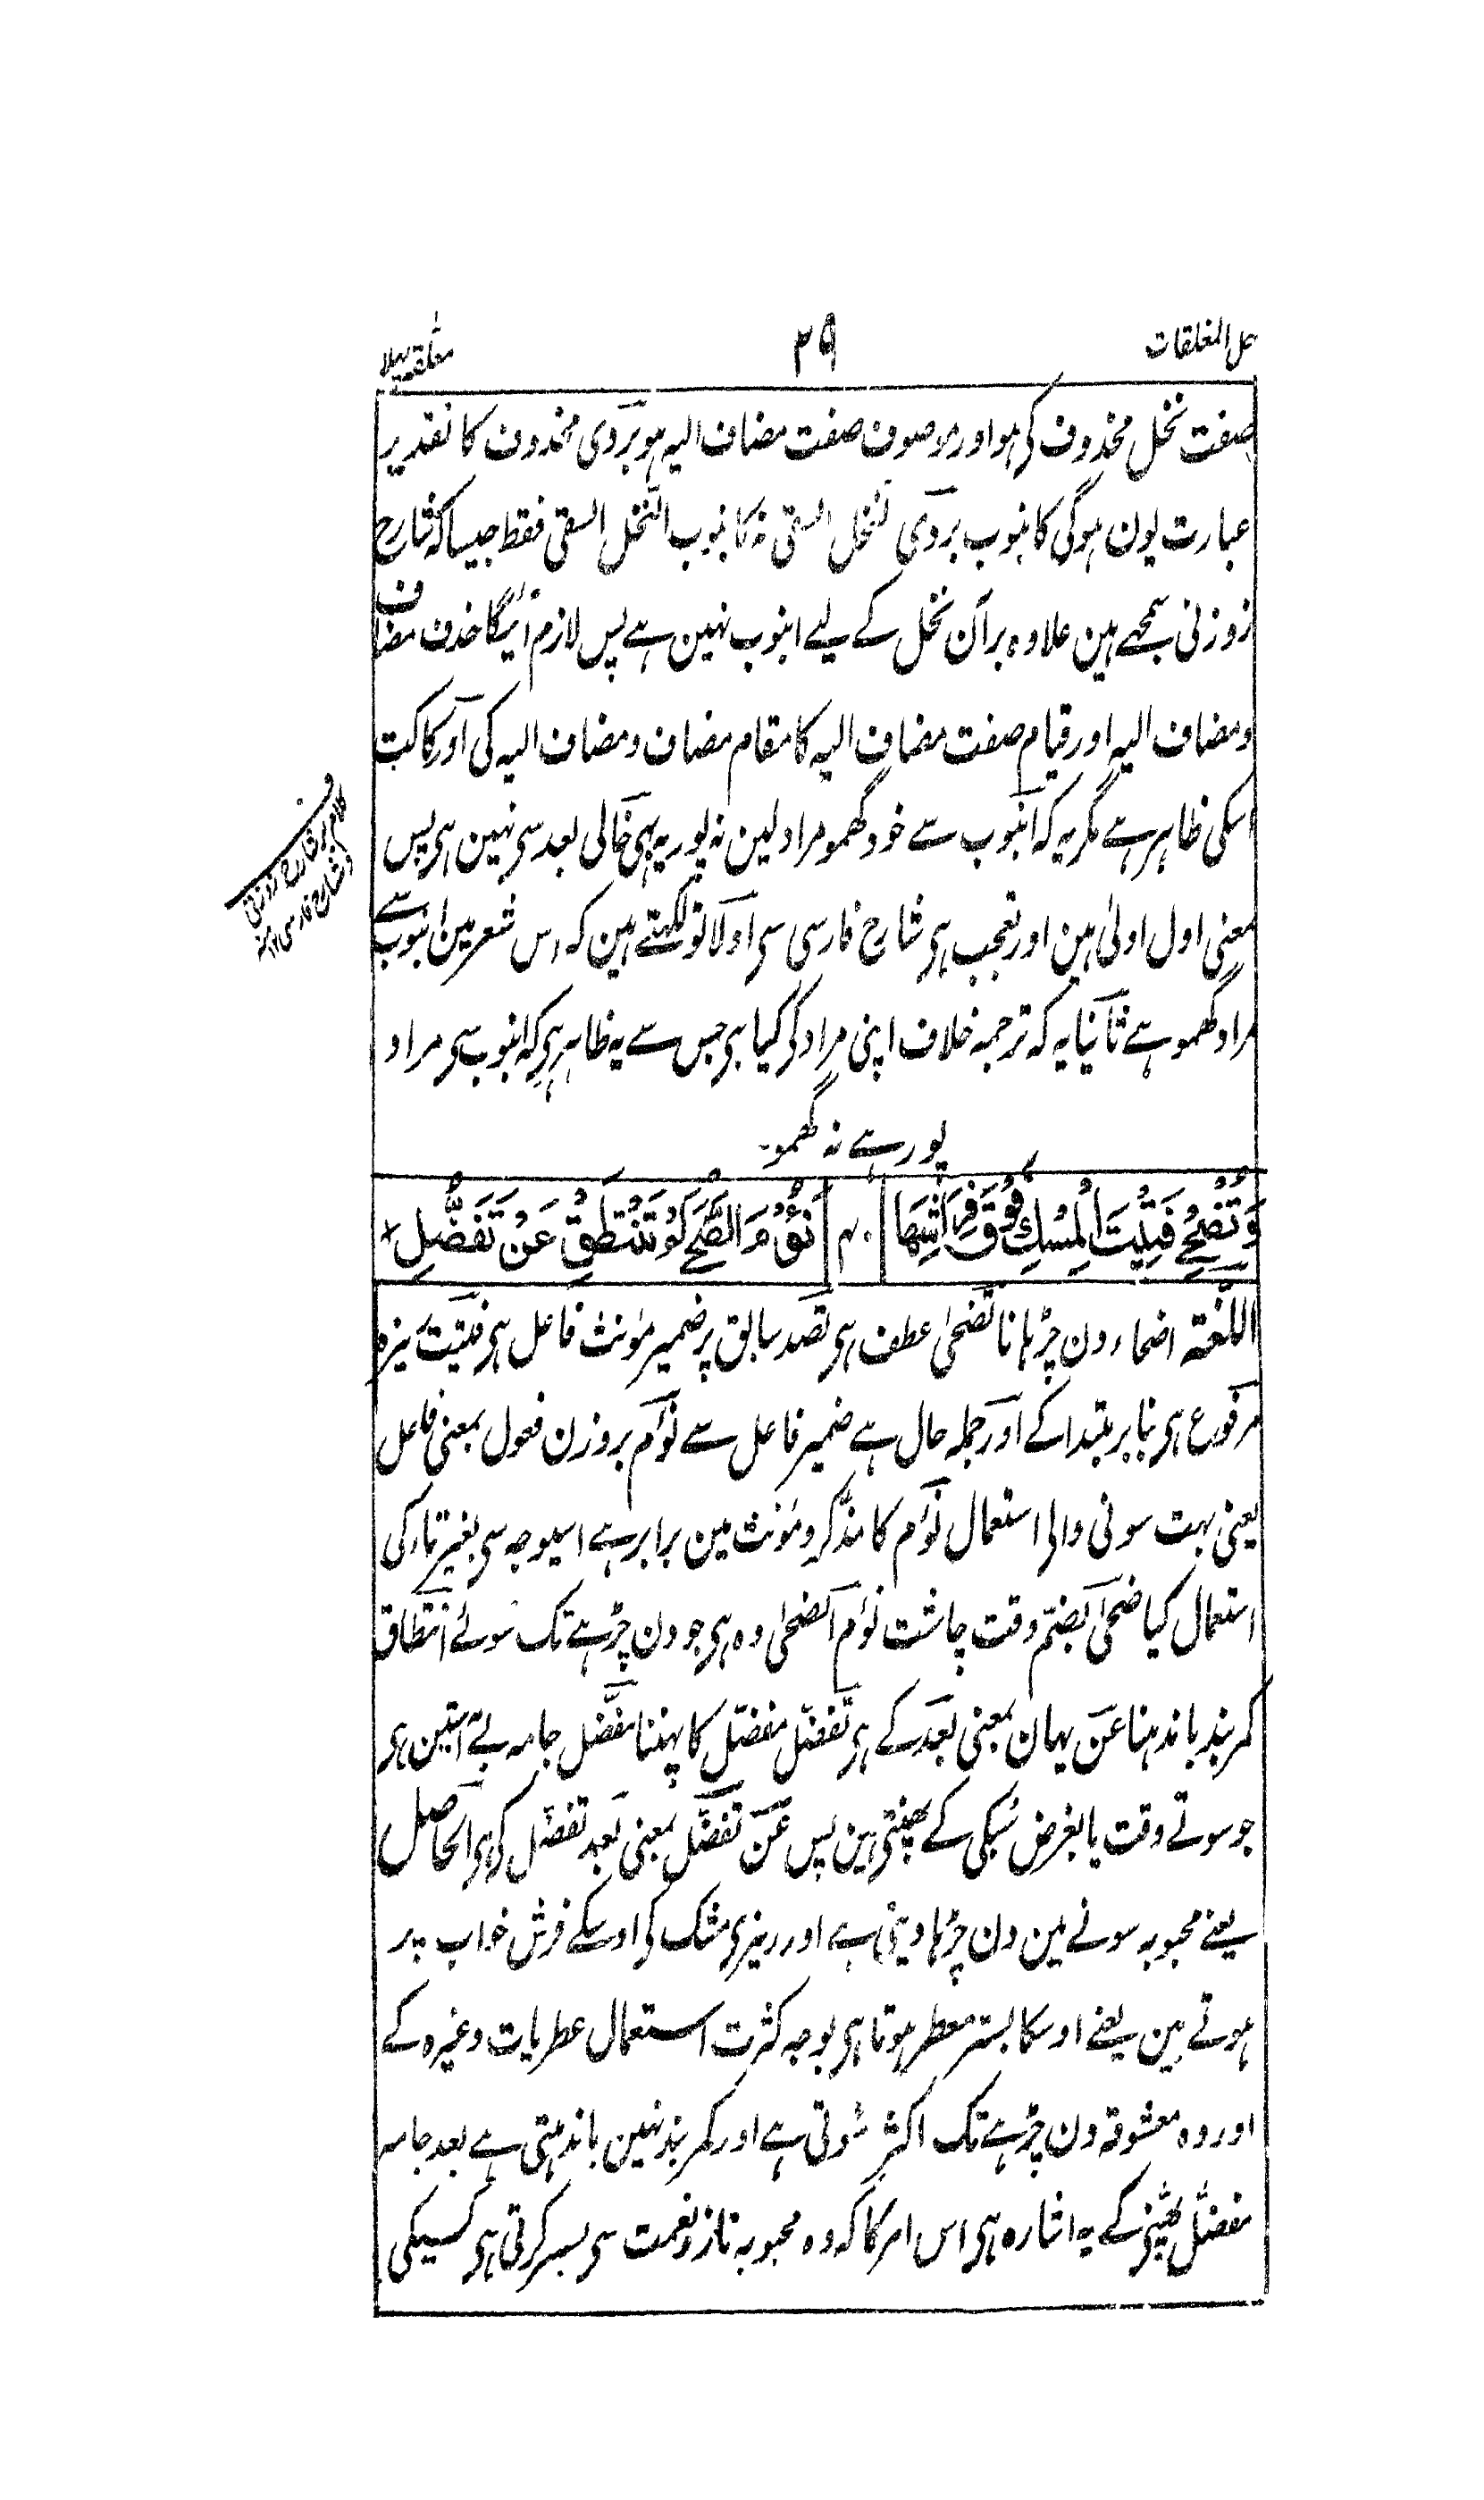 حل المغلقات
٢٩
معلقہ پہلا
صفت نخل محذوف کی ہو اور موصوف صفت مضاف الیہ ہو بردی محذوف کا تقدیر
عبارت یون ہوگی کانبوب بردی النخل السقی نہ کانبوب النخل السقی فقط جیسا کہ شارح
زوزنی سمجھے ہین علاوہ برآن نخل کے لیے انبوب نہین ہے پس لازم آئیگا حذف مضاف
ومضاف الیہ اور قیام صفت مضاف الیہ کا مقام مضاف ومضاف الیہ کی اور رکاکت
اسکی ظاہر ہے مگر یہ کہ انبوب سے خود گھمو مراد لین نہ پور یہ بہی خالی بعد سی نہین ہی پس
معنی اول اولیٰ ہین اور تعجب ہی شارح فارسی سی اولا تو لکہتے ہین کہ اس شعر مین انبوب سے
مراد گھمو ہے ثانیا یہ کہ ترجمہ خلاف اپنی مراد کی کیا ہی جس سے یہ ظاہر ہی کہ انبوب سی مراد
پور ہے نہ گھمو۔
ف
کلام بر شارح زوزنی
وشارح فارسی ١٢ منہ
وَتُضْحِيْ فَتِيْتَ الْمِسْكِ فَوْقَ فِرَاشِهَا
٤٠
نَؤُوْمَ الضُّحٰى لَمْ تَنْتَطِقْ عَنْ تَفَضُّلِ
اللغۃ اضحاء دن چڑہانا تضحی عطف ہی تصد سابق پر ضمیر مؤنث فاعل ہی فتیت ریزہ
مرفوع ہی بنا بر مبتدا کے اور جملہ حال ہے ضمیر فاعل سے نؤم بروزن فعول بمعنی فاعل
یعنی بہت سونی والی استعمال نؤم کا مذکر ومؤنث مین برابر ہے اسیوجہ سی بغیر تار کی
استعمال کیا ضحی بضم وقت چاشت نؤم الضحی وہ ہی جو دن چڑہے تک سوئے انتطاق
کمر بند باندہنا عن یہان بمعنی بعد کے ہی تفضل مفضل کا پہننا مفضل جامہ بے آستین ہی
جو سوتے وقت یا بغرض سُبکی کے پہنتی ہین پس عن تفضل بمعنی بعد تفضل کی ہی الحاصل
یعنے محبوبہ سونے مین دن چڑہا دیتی ہے اور ریزی مشک کی اوسکے فرش خواب پر
ہوتے ہین یعنے اوسکا بستر معطر ہوتا ہی بوجہ کثرت استعمال عطریات وغیرہ کے
اور وہ معشوقہ دن چڑہے تک اکثر سوتی ہے اور کمر بند نہین باندہتی ہے بعد جامہ
مفضل پہننے کے یہ اشارہ ہی اس امر کا کہ وہ محبوبہ ناز ونعمت سی بسر کرتی ہی کسیکی